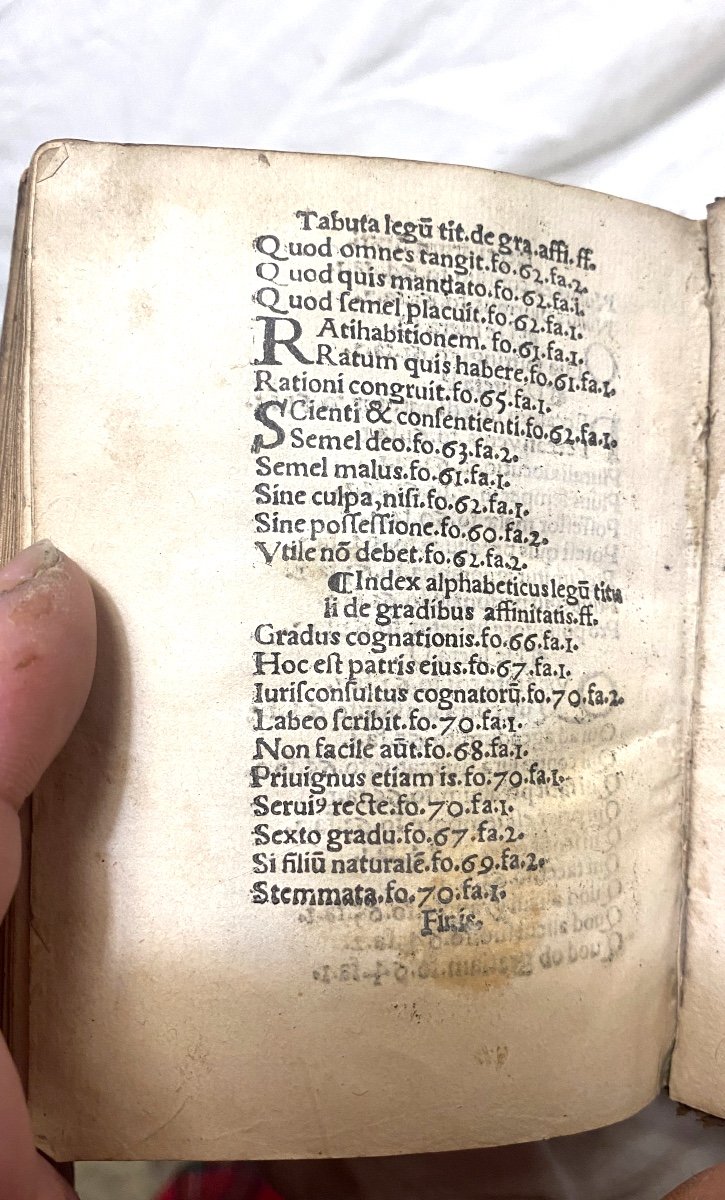 Tabuta legū tit.de gra.affi.ff.
Quod omnes tangit.fo.62.fa.2.
Quod quis mandato.fo.62.fa.i.
Quod ſemel placuit.fo.62.fa.1.
RAtihabitionem. fo.61.fa.1.
Ratum quis habere.fo.61.fa.1.
Rationi congruit.fo.65.fa.1.
SCienti & conſentienti.fo.62.fa.1.
Semel deo.fo.63.fa.2.
Semel malus.fo.61.fa.1.
Sine culpa,niſi.fo.62.fa.1.
Sine poſſeſſione.fo.60.fa.2.
Vtile nō debet.fo.62.fa.2.
¶Index alphabeticus legū titu
li de gradibus affinitatis.ff.
Gradus cognationis.fo.66.fa.1.
Hoc eſt patris eius.fo.67.fa.1.
Iuriſconſultus cognatorū.fo.70.fa.2.
Labeo ſcribit.fo.70.fa.1.
Non facile aūt.fo.68.fa.1.
Priuignus etiam is.fo.70.fa.1.
Seruiꝰ recte.fo.70.fa.1.
Sexto gradu.fo.67.fa.2.
Si filiū naturalē.fo.69.fa.2.
Stemmata.fo.70.fa.1.
Finis.